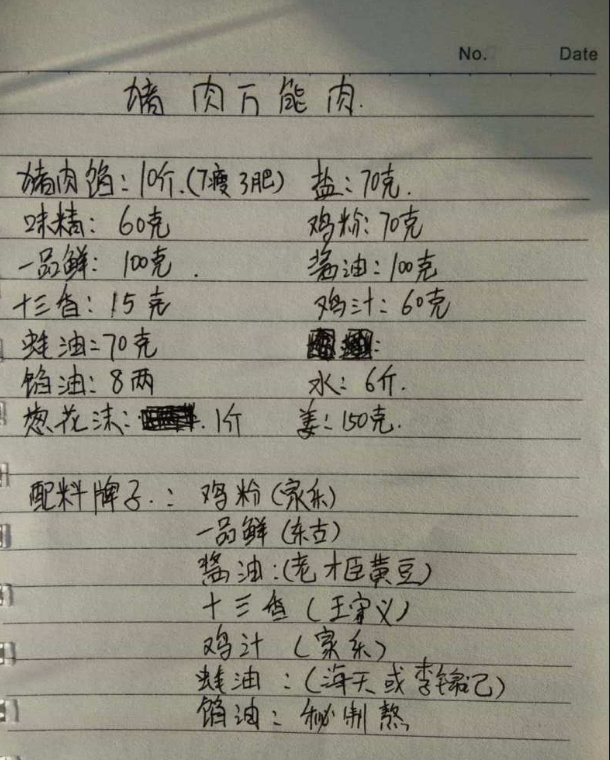 No. Date
猪肉万能肉.
猪肉馅:10斤.(7瘦3肥) 盐:70克.
味精:60克 鸡粉:70克
一品鲜:100克. 酱油:100克
十三香:15克 鸡汁:60克
蚝油:70克
馅油:8两 水:6斤.
葱花沫:1斤 姜:150克.
配料牌子.:鸡粉(家乐)
一品鲜(东古)
酱油:(老才臣黄豆)
十三香(王守义)
鸡汁(家乐)
蚝油:(海天或李锦记)
馅油:秘制熬